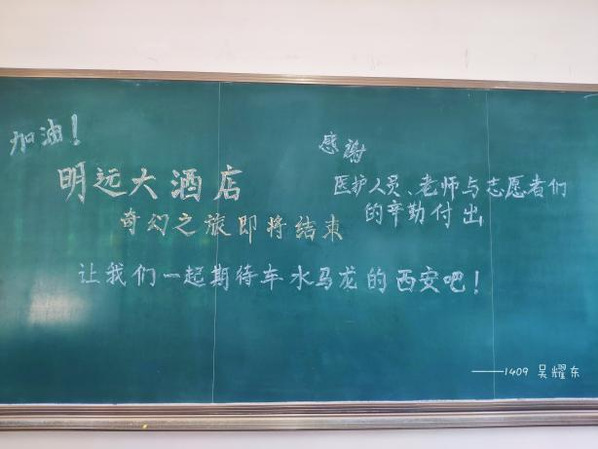 加油！
明远大酒店
奇幻之旅即将结束
感谢
医护人员、老师与志愿者们
的辛勤付出
让我们一起期待车水马龙的西安吧！
——1409 吴耀东